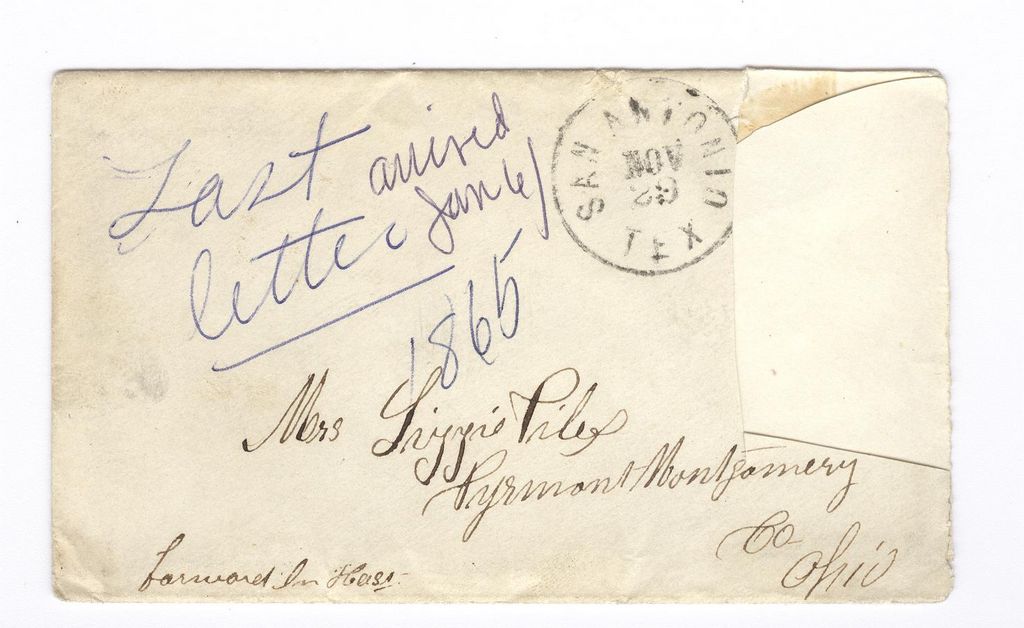 Last arrived
letter Jan 4
1865
SAN ANTONIO
NOV
29
TEX
Mrs Lizzie Piles
Pyrmont Montgomery
Co
Ohio
forward In Hast